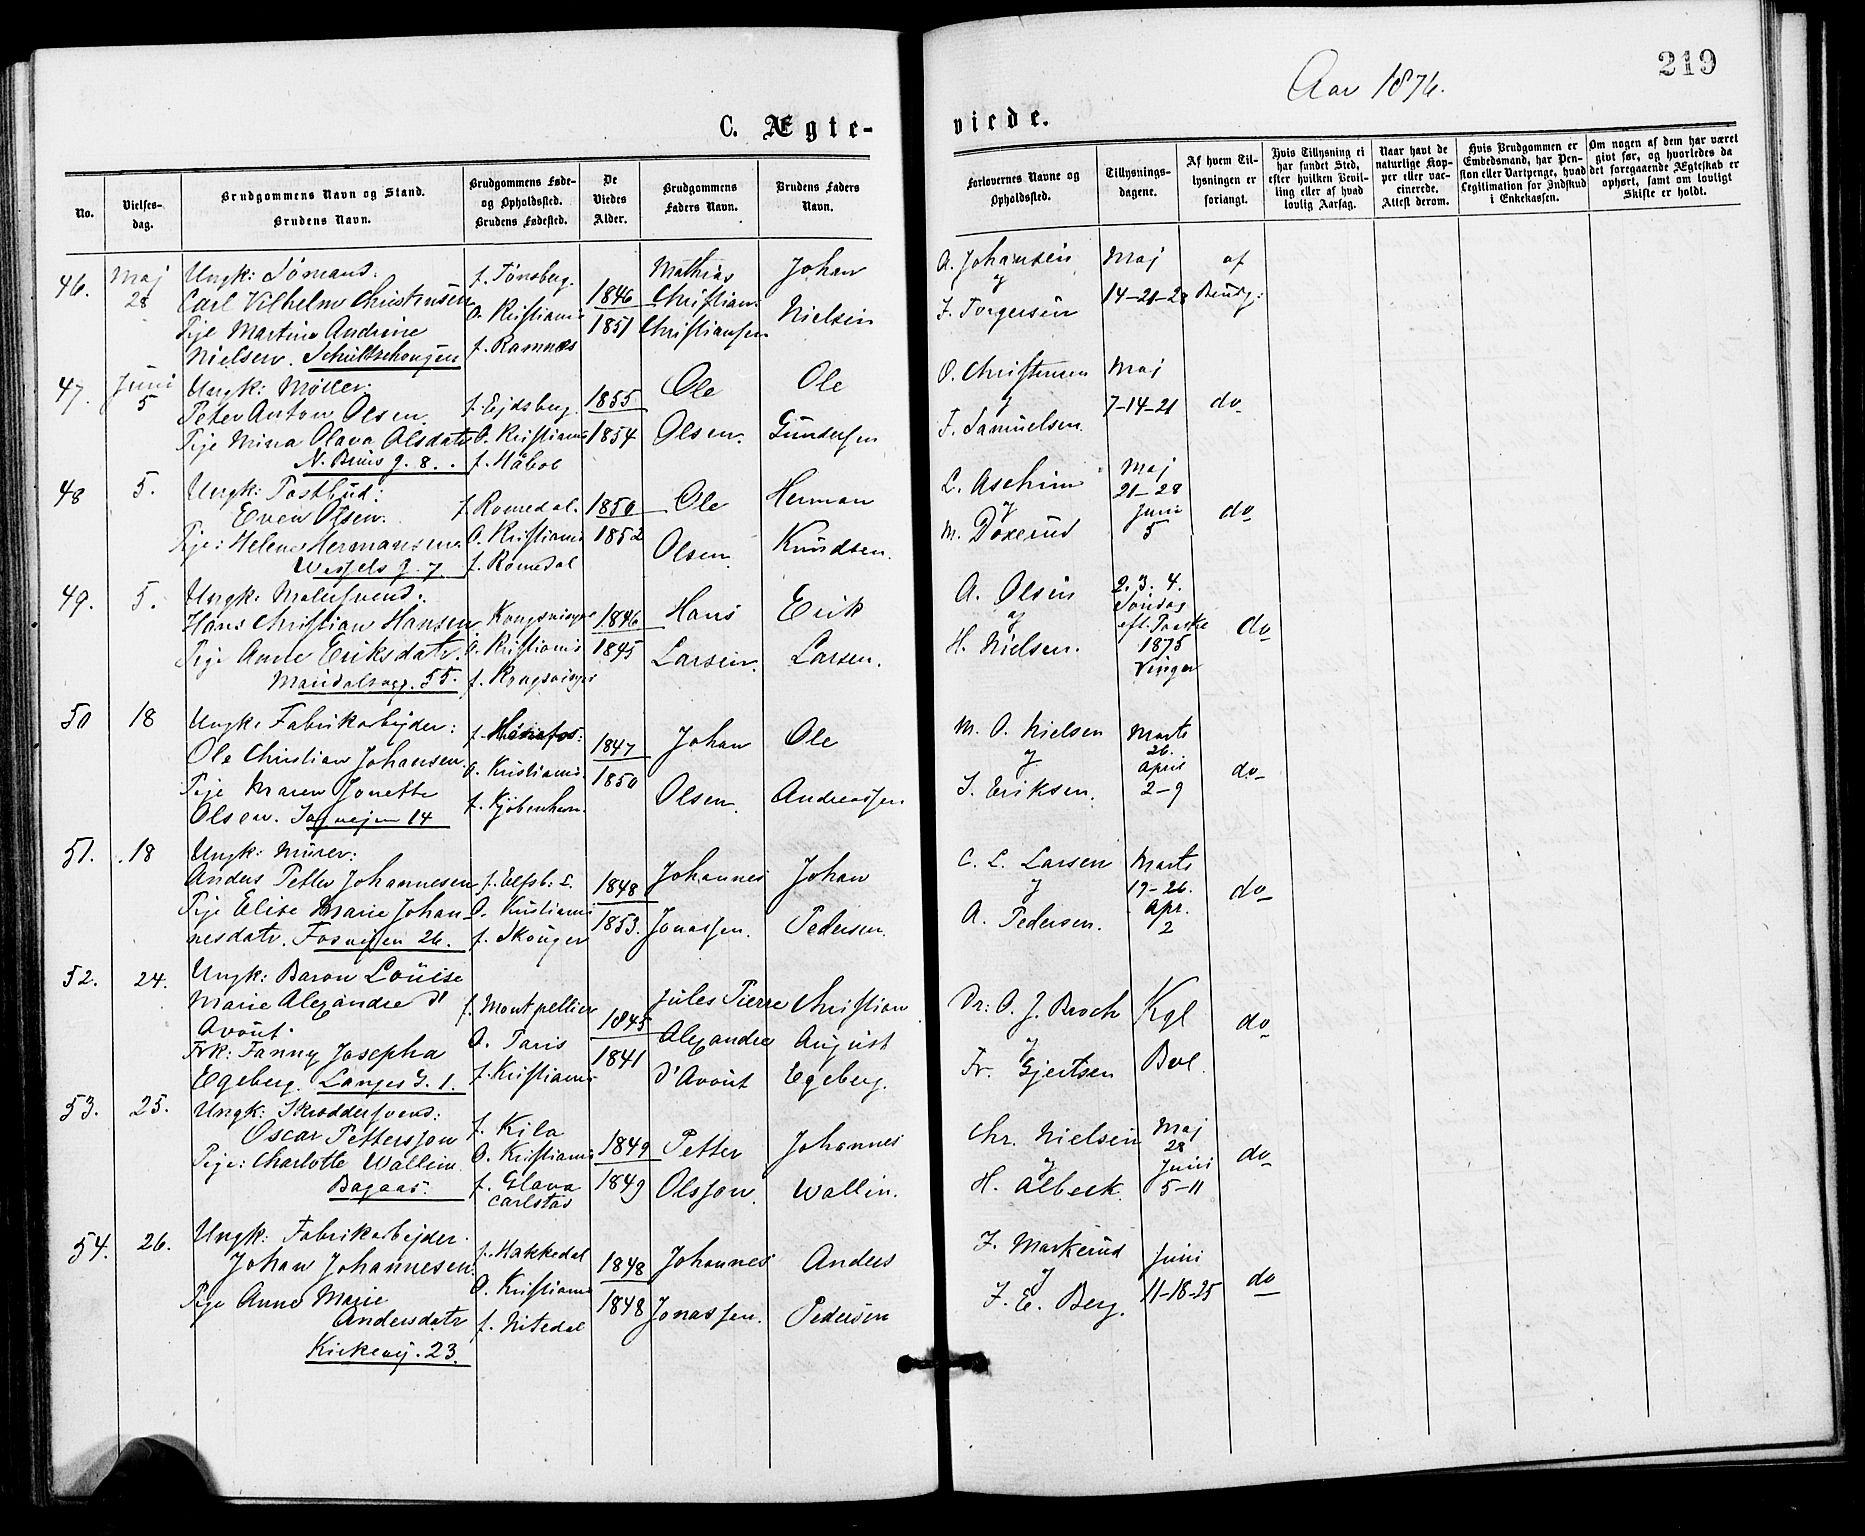 219
Aar 1876.
C. Ægte-
viede.
No.
Vielses-
dag.
Brudgommens Navn og Stand.
Brudens Navn.
Brudgommens Føde-
og Opholdssted.
Brudens Fødested.
De
Viedes
Alder.
Brudgommens
Faders Navn.
Brudens Faders
Navn.
Forlovernes Navne og
Opholdssted.
Tillysnings-
dagene.
Af hvem Til-
lysningen er
forlangt.
Hvis Tillysning ei
har fundet Sted,
efter hvilken Bevil-
ling eller af hvad
lovlig Aarsag.
Naar havt de
naturlige Kop-
per eller vac-
cinerede.
Attest derom.
Hvis Brudgommen er
Embedsmand, har Pen-
sion eller Vartpenge, hvad
Legitimation for Indskud
i Enkekassen.
Om nogen af dem har været
givt før, og hvorledes da
det foregaaende Ægteskab er
ophørt, samt om lovligt
Skifte er holdt.
46.
Maj
28
Ungk: Sømand.
Carl Vilhelm Christensen
Pige Martine Andrine
Nielsen.
f. Tønsberg.
O. Kristiania
f. Ramnæs
1846
1851
Mathias
Christian
Christiansen
Johan
Nielsen
A. Johansen
og
F. Torgersen
Maj
14-21-28
af
Brudg:
47.
Juni
5
Ungk: Møller:
Peter Anton Olsen
Pige Mina Olava Olsdatr
N. Brug. 8.
f. Ejdsberg.
O. Kristiania
f. Haabøl
1855
1854
Ole
Olsen.
Ole
Gundersen
O. Christensen
og
F. Samuelsen
Maj
7-14-21
do
48
5.
Ungk: Postbud:
Even Olsen.
Pige: Helene Hermansen
Wessels g. 7.
f. Romedal.
O. Kristiania
f. Romedal
1850
1852
Ole
Olsen
Herman
Knudsen.
L. Aschim
og
M. Doxerud
Maj
21-28
Juni
5
do
49.
5.
Ungk: Malersvend:
Hans Christian Hansen
Pige Anne Eriksdatr.
Maridalsvej. 55.
f. Kongsvinger
O. Kristiania
f. Kongsvinger
1846
1845
Hans
Larsen.
Erik
Larsen.
A. Olsen
og
H. Nielsen.
2. 3. 4.
Søndag
eft. Paaske
1875
Vinger
do
50
18
Ungk: Fabrikarbejder:
Ole Christian Johansen
Pige Maren Jonette
Olsen. Sagvejen 14
f. Hønefos:
O. Kristiania
f. Kjøbenhavn.
1847
1850
Johan
Olsen
Ole
Andreassen
M. O. Nielsen
og
S. Eriksen.
Marts
26.
April
2-9
do
51.
18
Ungk: Murer:
Anders Petter Johannesen
Pige Elise Marie Johan
nesdatr. Fosvejen 26.
f. Elfsb: L.
O. Kristiania
f. Skouger
1848
1853.
Johannes
Jonassen.
Johan
Pedersen.
C. L. Larsen
og
A. Pedersen.
Marts
19-26.
Apr.
2
do
52.
24.
Ungk: Baron Louise
Marie Alexandre d'
Avout.
Frk: Fanny Josepha
Egeberg. Langes G. 1.
f. Montpellier
O. Paris
f. Kristiania
1845
1841
Jules Pierre
Alexandre
d'Avout
Christian
August
Egeberg.
Dr: O. J. Broch
og
Fr. Gjertsen
Kgl
Bev.
do
53.
25.
Ungk: Skræddersvend:
Oscar Pettersson
Pige: Charlotte Wallin.
Bagaas.
f. Kila
O. Kristiania
f. Glava
Carlstad
1849
1849
Petter
Olsson.
Johannes
Wallin.
Chr. Nielsen
og
H. Albeck.
Maj
28
Juni
5-11
do
54.
26.
Ungk: Fabrikarbejder.
Johan Johannesen.
Pige Anne Marie
Andersdatr
Kirkevej. 23.
f. Hakkedal
O. Kristiania
f. Nitedal
1848
1848
Johannes
Jonassen.
Anders
Pedersen
J. Markerud
og
J. E. Berg.
Juni
11-18-25
do